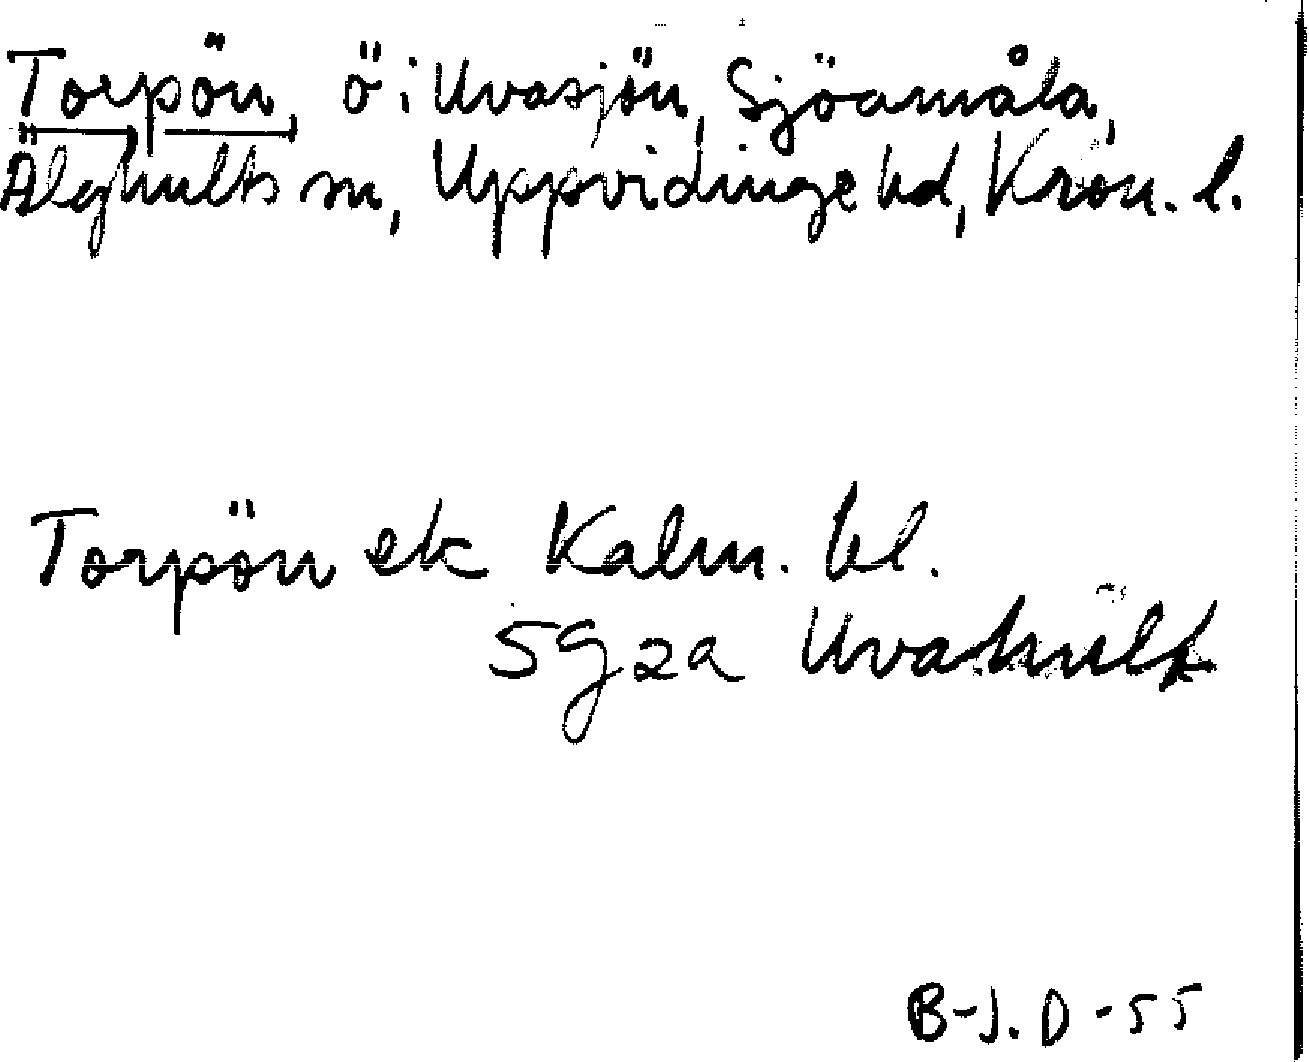 Torpön, ö i Uvasjön, Sjöamåla,
Älghults sn, Uppvidinge hd, Kron. l.
Torpön ek Kalm. bl.
5g2a Uvahult
B-J. D-55